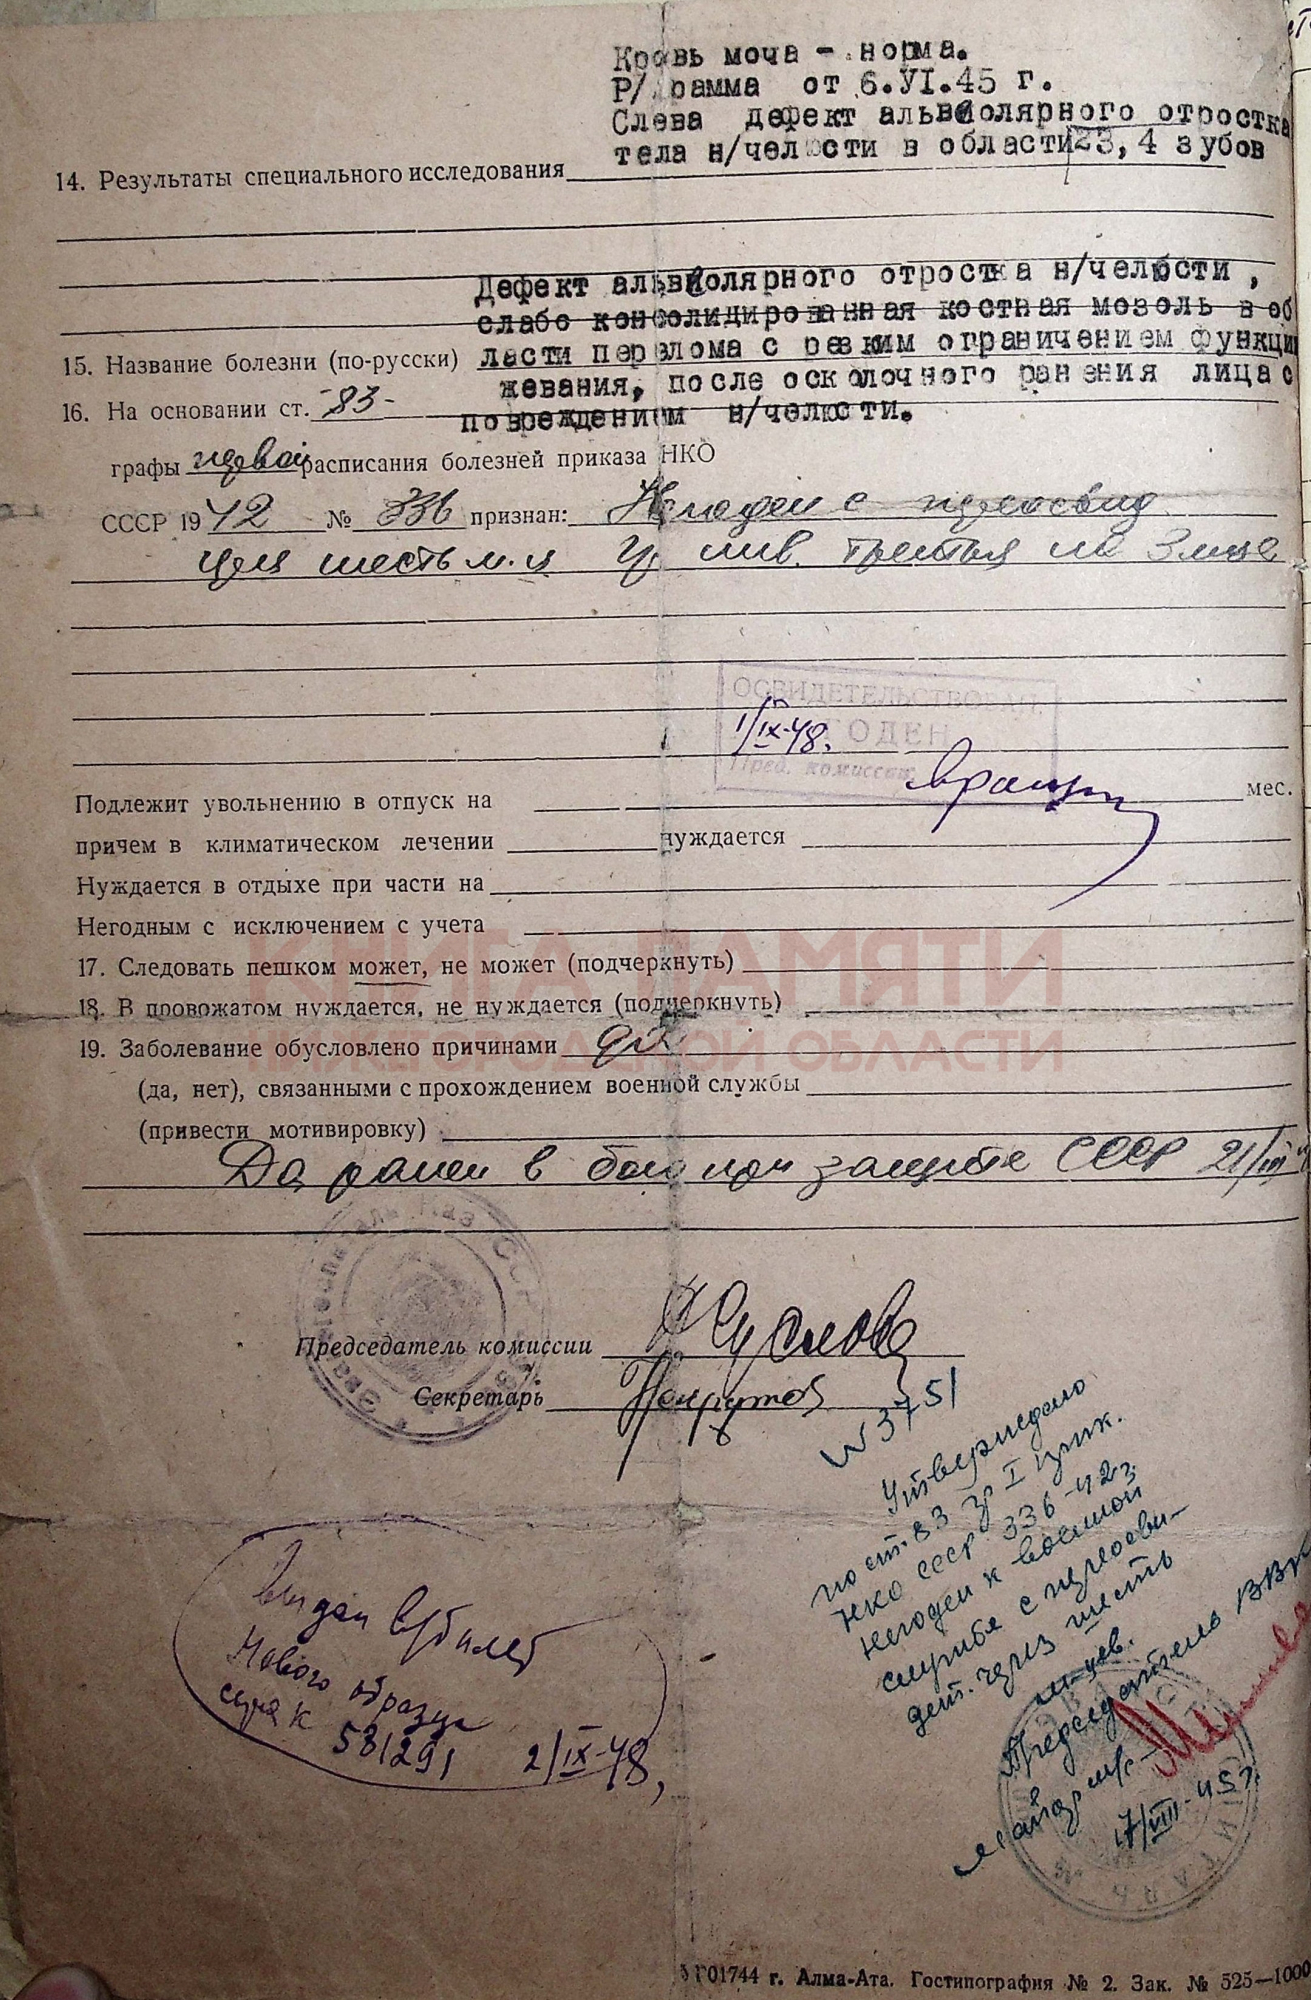 Кровь моча - норма.
Р/грамма от 6.VI.45 г.
Слева дефект альвеолярного отростка
тела н/челюсти в области 23,4 зубов
14. Результаты специального исследования
Дефект альвеолярного отростка н/челюсти,
слабо консолидированная костная мозоль в об
15. Название болезни (по-русски) ласти перелома с резким ограничением функции
жевания, после осколочного ранения лица с
16. На основании ст. -83- повреждением н/челюсти.
графы первой расписания болезней приказа НКО
СССР 1942 № 336 признан: Негоден с переосвид
через шесть м.ц Гр. инв. третья на 3 мце
ОСВИДЕТЕЛЬСТВОВАН
ГОДЕН
1/IX-48.
Пред. комиссии
Подлежит увольнению в отпуск на мес.
причем в климатическом лечении нуждается
Нуждается в отдыхе при части на
Негодным с исключением с учета
КНИГА ПАМЯТИ
17. Следовать пешком может, не может (подчеркнуть)
18. В провожатом нуждается, не нуждается (подчеркнуть)
НИЖЕГОРОДСКОЙ ОБЛАСТИ
19. Заболевание обусловлено причинами да
(да, нет), связанными с прохождением военной службы
(привести мотивировку)
Да ранен в бою при защите СССР 21/III
Председатель комиссии Суслова
Секретарь
N 3751
Утверждено
по ст. 83 гр I прик.
НКО СССР 336-42г.
негоден к военной
службе с переосви-
дет. через шесть
м-цев.
Председатель ВВК
майор м/с
17/VIII-45г.
Выдан в/билет
нового образца
серия К
581291 2/IX-48,
Г01744 г. Алма-Ата. Гостипография № 2. Зак. № 525—1000